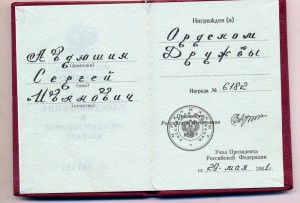 Авдюшин
(фамилия)
Сергей
(имя)
Иванович
(отчество)
Награжден (а)
Орденом
Дружбы
Награда № 6182
Президент
Российской Федерации
Указ Президента
Российской Федерации
от 29 мая